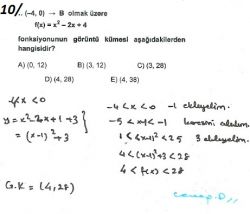 10/.. (-4, 0) → B olmak üzere
f(x) = x² - 2x + 4
fonksiyonunun görüntü kümesi aşağıdakilerden
hangisidir?
A) (0, 12) B) (3, 12) C) (3, 28)
D) (4, 28) E) (4, 38)
-4<x<0
y = x²-2x+1+3
= (x-1)²+3
G.K = (4,28)
-4<x<0 -1 ekleyelim.
-5<x-1<-1 karesini alalım.
1<(x-1)²<25 3 ekleyelim.
4<(x-1)²+3<28
4<f(x)<28
cevap.D//